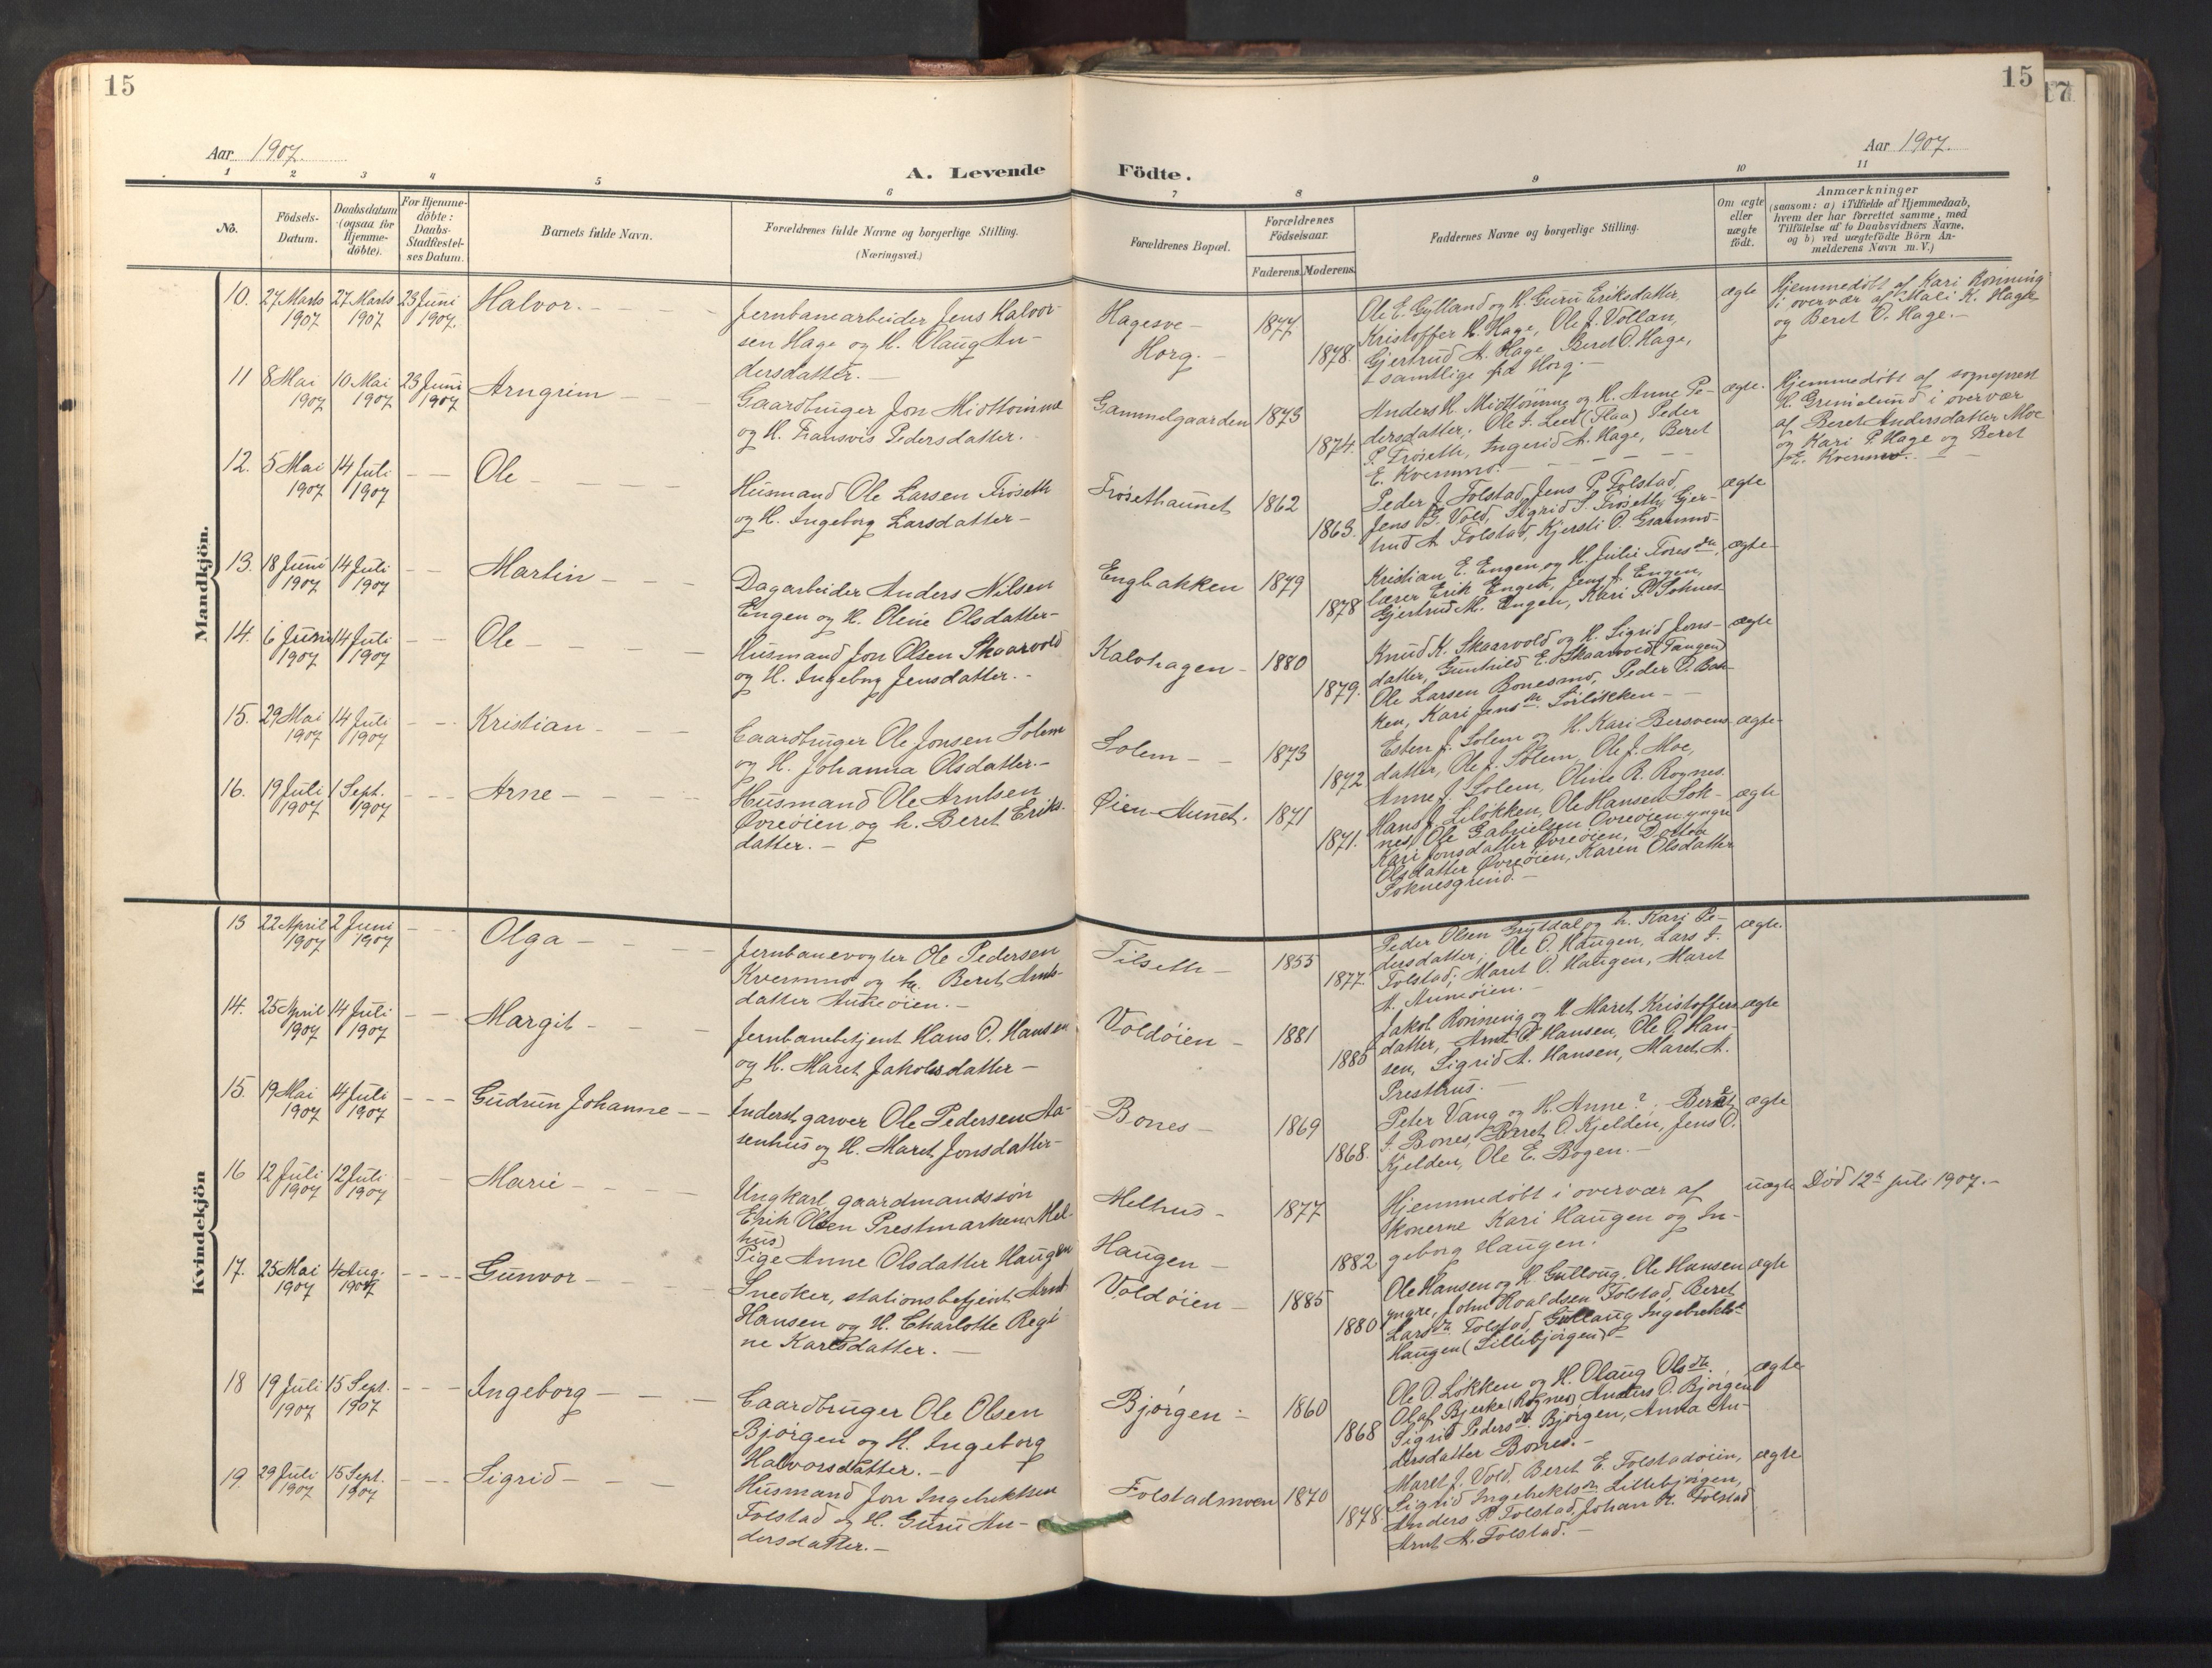 15
15
17
Aar 1907.
A. Levende Födte.
Aar 1907.
1 2 3 4 5 6 7 8 9 10 11
No.
Födsels-
Datum.
Daabsdatum
(ogsaa for
Hjemme-
döbte).
For Hjemme-
döbte:
Daabs-
Stadfæstel-
ses Datum.
Barnets fulde Navn.
Forældrenes fulde Navne og borgerlige Stilling.
(Næringsvei.)
Forældrenes Bopæl.
Forældrenes
Födselsaar.
Faderens. Moderens.
Faddernes Navne og borgerlige Stilling.
Om ægte
eller
uægte
født.
Anmærkninger
(saasom: a) i Tilfælde af Hjemmedaab,
hvem der har forrettet samme, med
Tilföielse af to Daabsvidners Navne,
og b) ved uægtefödte Börn An-
melderens Navn m. V.)
Mandkjön.
10. 27 Marts 1907 27 Marts 1907 23 Juni 1907. Halvor.
Jernbanearbeider Jens Halvor-
sen Hage og H. Olaug An-
dersdatter.
Hagesve-
Horg.
1877
1878.
Ole E. Gylland og H. Guru Eriksdatter,
Kristoffer H. Hage, Ole J. Vollan,
Gjertrud A. Hage, Beret O. Hage,
samtlige fra Horg.
ægte
Hjemmedöbt af Kari Rønning
i overvær af Mali K. Hage
og Beret O. Hage.
11 8 Mai 1907 10 Mai 1907 23 Juni 1907 Arngrim
Gaardbruger Jon Midttømme
og H. Fransvis Pedersdatter.
Gammelgaarden
1873
1874.
Anders H. Midttömme og H. Anne Pe-
dersdatter; Ole A. Leer (Flaa) Peder
P. Frøseth, Ingerid A. Hage, Beret
E. Kvernmo.
ægte.
Hjemmedöbt af sogneprest
H. Grimelund i overvær
af Beret Andersdatter Moe
og Kari P. Hage og Beret
E. Kvernmo.
12. 5 Mai 1907 14 Juli 1907 Ole
Husmand Ole Larsen Frøseth
og H. Ingeborg Larsdatter
Frøsethaunet
1862
1863.
Peder J. Folstad, Jens P. Folstad,
Jens G. Vold, Sigrid S. Frøseth, Gjer-
trud A. Folstad, Kjersti O.
ægte
13. 18 Juni 1907 14 Juli 1907 Martin
Dagarbeider Anders Nilsen
Engen og H. Oline Olsdatter
Engbakken
1879
1878
Kristian E. Engen og H. Julie Toresdtr.,
lærer Erik Engen, Jens J. Engen,
Gjertrud M. Engen, Kari P. Soknes
ægte
14. 6 Juni 1907 14 Juli 1907 Ole
Husmand Jon Olsen Skaarvold
og H. Ingeborg Jensdatter.
Kalvhagen
1880
1879.
Knud K. Skaarvold og H. Sigrid Jons-
datter, Gunhild E. Skaarvold (Tangen)
Ole Larsen Bonesmo, Peder O. Bak-
ken, Kari Jensdtr. Sørløkken
ægte
15. 29 Mai 1907 14 Juli 1907 Kristian
Gaardbruger Ole Jonsen Solem
og H. Johanna Olsdatter.
Solem
1873
1872
Esten J. Solem og H. Kari Bersvens-
datter, Ole J. Solem, Ole J. Moe,
Anne J. Solem, Oline R. Rognes.
ægte
16. 19 Juli 1907 1 Sept. 1907 Arne
Husmand Ole Arntsen
Øvreøien og h. Beret Eriks-
datter.
Øien-Aunet.
1871
1871.
Hans J. Liløkken, Ole Hansen Sok-
nes, Ole Gabrielsen Øvreøien yngre
Kari Jonsdatter Øvreøien, Dortea
Olsdatter Øvreøien, Karen Olsdatter
Soknesgrind.
ægte
Kvindekjön
13 22 April 1907 2 Juni 1907 Olga
Jernbanevogter Ole Pedersen
Kvernmo og h. Beret Arnts-
datter Auneøien.
Tilseth
1855
1877.
Peder Olsen Gryttdal og h. Kari Pe-
dersdatter; Ole O. Haugen, Lars A.
Folstad; Maret O. Haugen, Maret
A. Auneøien.
ægte.
14. 25 April 1907 14 Juli 1907 Margit
Jernbanebetjent Hans O. Hansen
og H. Maret Jakobsdatter
Voldøien
1881
1885
Jakob Rönning og H. Maret Kristoffers-
datter, Arnt O. Hansen, Ole O. Han-
sen, Sigrid A. Hansen, Maret A.
Presthus.
ægte
15. 19 Mai 1907 14 Juli 1907 Gudrun Johanne
Inderst, garver Ole Pedersen Aa-
senhus og H. Maret Jonsdatter
Bones
1869
1868.
Peter Vang og H. Anne?, Beret
A. Bones, Beret O. Kjelden, Jens O.
Kjelden, Ole E. Bogen.
ægte
16 12 Juli 1907 12 Juli 1907 Marie
Ungkarl, gaardmandssøn
Erik Olsen Prestmarken (Mel-
hus)
Pige Anne Olsdatter Haugen
Melhus
Haugen
1877
1882
Hjemmedöbt i overvær af
konerne Kari Haugen og In-
geborg Haugen.
uægte
Död 12te juli 1907.
17. 25 Mai 1907 4 Aug. 1907 Gunvor
Snedker, stationsbetjent Arnt
Hansen og H. Charlotte Regi-
ne Karlsdatter.
Voldøien
1885
1880
Ole Hansen og H. Gullaug, Ole Hansen
yngre, John Roaldsen Folstad, Beret
Larsdtr. Folstad, Gullaug Ingebrektsdtr.
Haugen (Lillebjørgen)
ægte
18 19 Juli 1907 15 Sept. 1907 Ingeborg
Gaardbruger Ole Olsen
Bjørgen og H. Ingeborg
Halvorsdatter.
Bjørgen
1860
1868
Ole O. Løkken og H. Olaug Olsdtr.
Olaf Bjerke (Rognes), Anders O. Bjørgen
Sigrid Pedersdtr. Bjørgen, Anna An-
dersdatter Bones.
ægte
19. 29 Juli 1907 15 Sept. 1907 Sigrid
Husmand Jon Ingebrektsen
Folstad og H. Guru An-
dersdatter.
Folstadmoen
1870
1878.
Maret J. Vold, Beret E. Folstadøien,
Sigrid Ingebrektsdtr. Lillebjørgen,
Anders P. Folstad, Johan K. Folstad
Arnt A. Folstad.
ægte